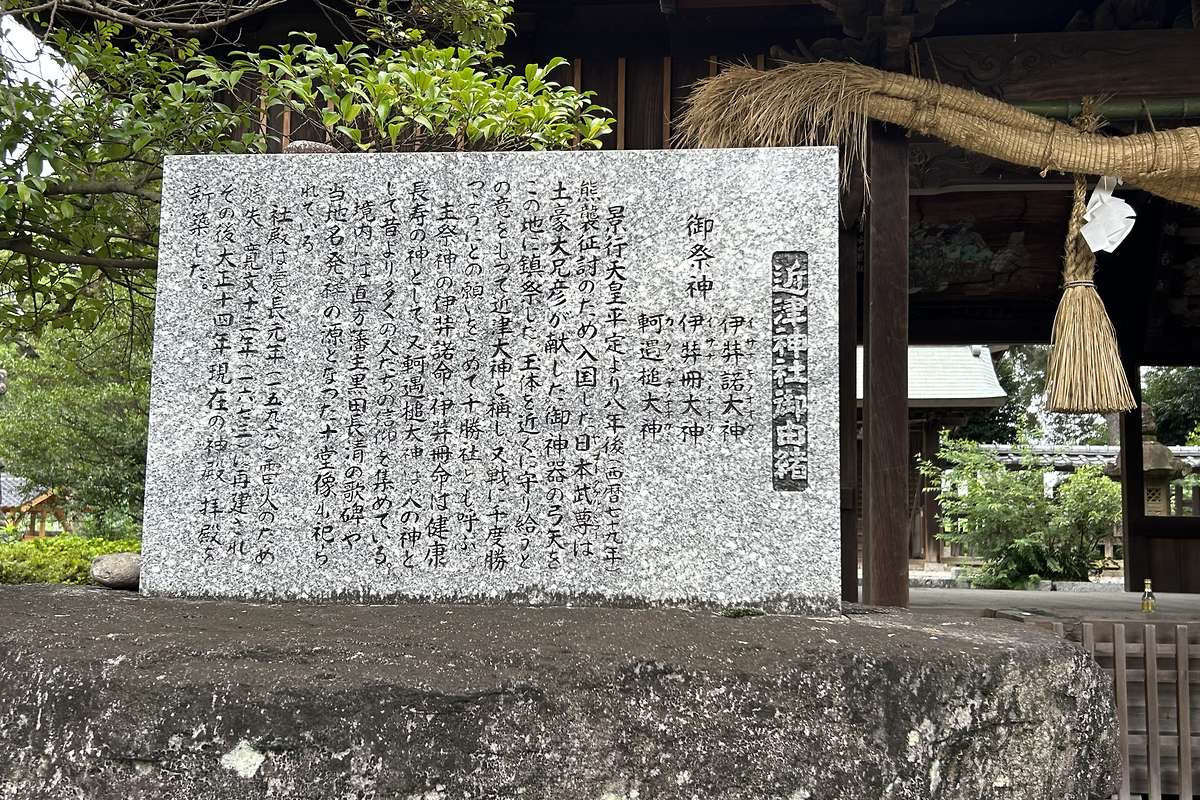 近津神社御由緒
御祭神
伊弉諾大神
イザナギノオオカミ
伊弉冊大神
イザナミノオオカミ
軻遇槌大神
カグツチノオオカミ
景行天皇平定より八年後(西暦七十九年)
熊襲征討のため入国した日本武尊は
土豪大兄彦が献した御神器の弓矢を
この地に鎮祭した 玉体を近くに守り給うと
の意をもって近津大神と称し又戦に十度勝
つようにとの願いをこめて十勝社とも呼ぶ
主祭神の伊弉諾命 伊弉冊命は健康
長寿の神として又軻遇槌大神は火の神と
して昔より多くの人たちの信仰を集めている
境内には直方藩主黒田長清の歌碑や
当地名発祥の源となった十堂像が祀ら
れている
社殿は慶長元年(一五九六)雷火のため
焼失 寛文十三年(一六七三)に再建され
その後大正十四年現在の神殿 拝殿を
新築した。